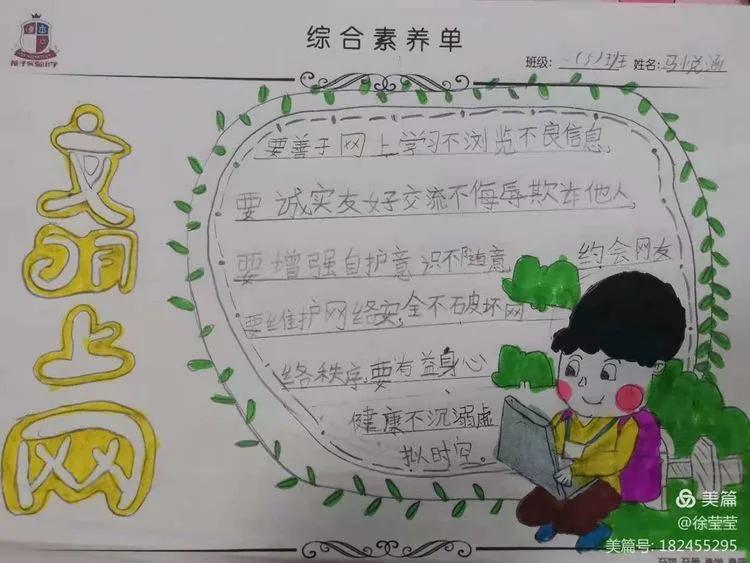 综合素养单
班级: 一(5)班 姓名: 马悦涵
文明上网
要善于网上学习不浏览不良信息,
要诚实友好交流不侮辱欺诈他人,
要增强自护意识不随意 约会网友
要维护网络安全不破坏网
络秩序,要有益身心
健康不沉溺虚
拟时空。
美篇
@徐莹莹
美篇号: 182455295